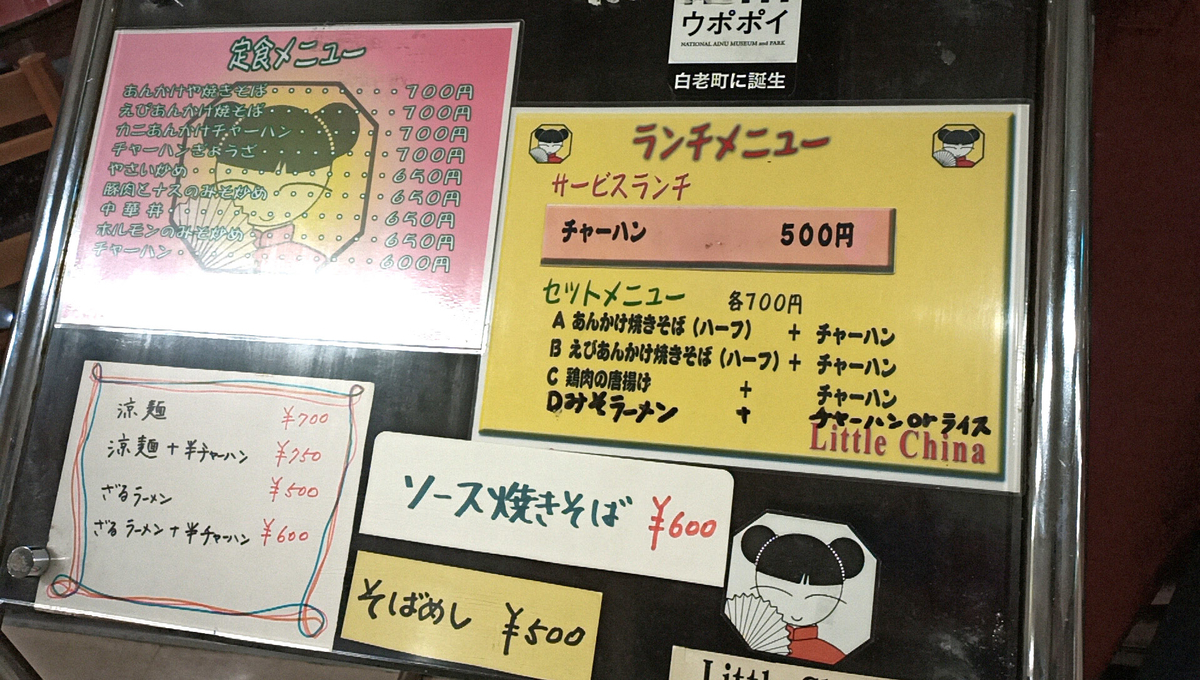 ウポポイ
NATIONAL AINU MUSEUM and PARK
白老町に誕生
定食メニュー
あんかけや焼きそば・・・・・・・700円
えびあんかけ焼そば・・・・・・・700円
カニあんかけチャーハン・・・・・700円
チャーハンぎょうざ・・・・・・・700円
やさい炒め・・・・・・・・・・・650円
豚肉とナスのみそ炒め・・・・・・650円
中華丼・・・・・・・・・・・・・650円
ホルモンのみそ炒め・・・・・・・650円
チャーハン・・・・・・・・・・・600円
ランチメニュー
サービスランチ
チャーハン 500円
セットメニュー 各700円
A あんかけ焼きそば(ハーフ) + チャーハン
B えびあんかけ焼きそば(ハーフ) + チャーハン
C 鶏肉の唐揚げ + チャーハン
Dみそラーメン + チャーハンorライス
Little China
涼麺 ¥700
涼麺+半チャーハン ¥750
ざるラーメン ¥500
ざるラーメン+半チャーハン ¥600
ソース焼きそば ¥600
そばめし ¥500
Little